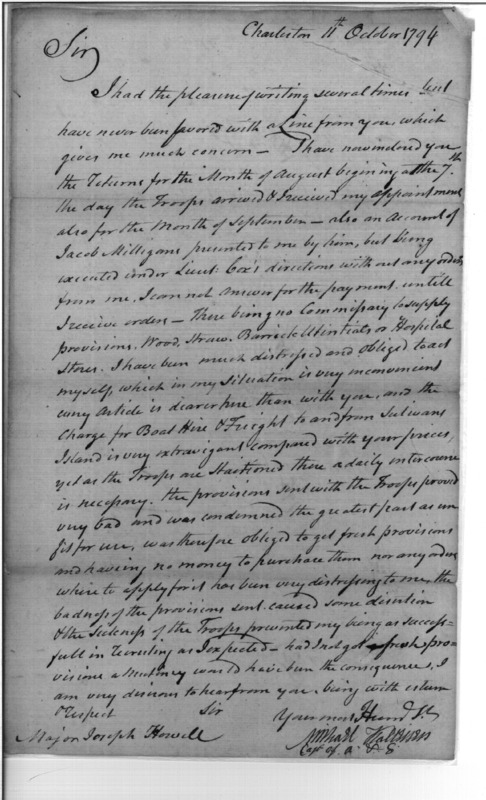 Charleston 11th October 1794
Sir
I had the pleasure of writing several times but
have never been favored with a Line from you, which
gives me much concern — I have now inclosed you
the Returns for the Month of August begining at the 7th
the day the Troops arrived & I recieved my appointment
also for the Month of September — also an Account of
Jacob Milligans presented to me by him, but being
executed under Lieut: Cox's directions with out any orders
from me, I can not answer for the payment untill
I receive orders — There being no Commissary to supply
provisions, Wood, Straw, Barrick Utintials or Hospital
Stores. I have been much distressed and obliged to act
myself, which in my Situation is very inconvenient
every Article is dearer here than with you, and the
Charge for Boat Hire & Freight to and from Sulivans
Island is very extravigant compared with your prices,
yet as the Troops are Stactioned there a daily intercourse
is necessary. the provisions sent with the Troops proved
very bad and was condemned the greatest part as un
fit for use, was therefore obliged to get fresh provisions
and having no money to purchase them nor any orders
where to apply for it has been very distressing to me, the
badness of the provisions sent caused some disertion
& the Sickness of the Troops prevented my being as success=
full in recruiting as I expected — had I not got fresh pro-
visions a Meutiney would have been the consequence, I
am very desirous to hear from you. being with esteem
& respect Sir
Your most Humb St
Michael Kaltisen
Capt of A. & E
Major Joseph Howell